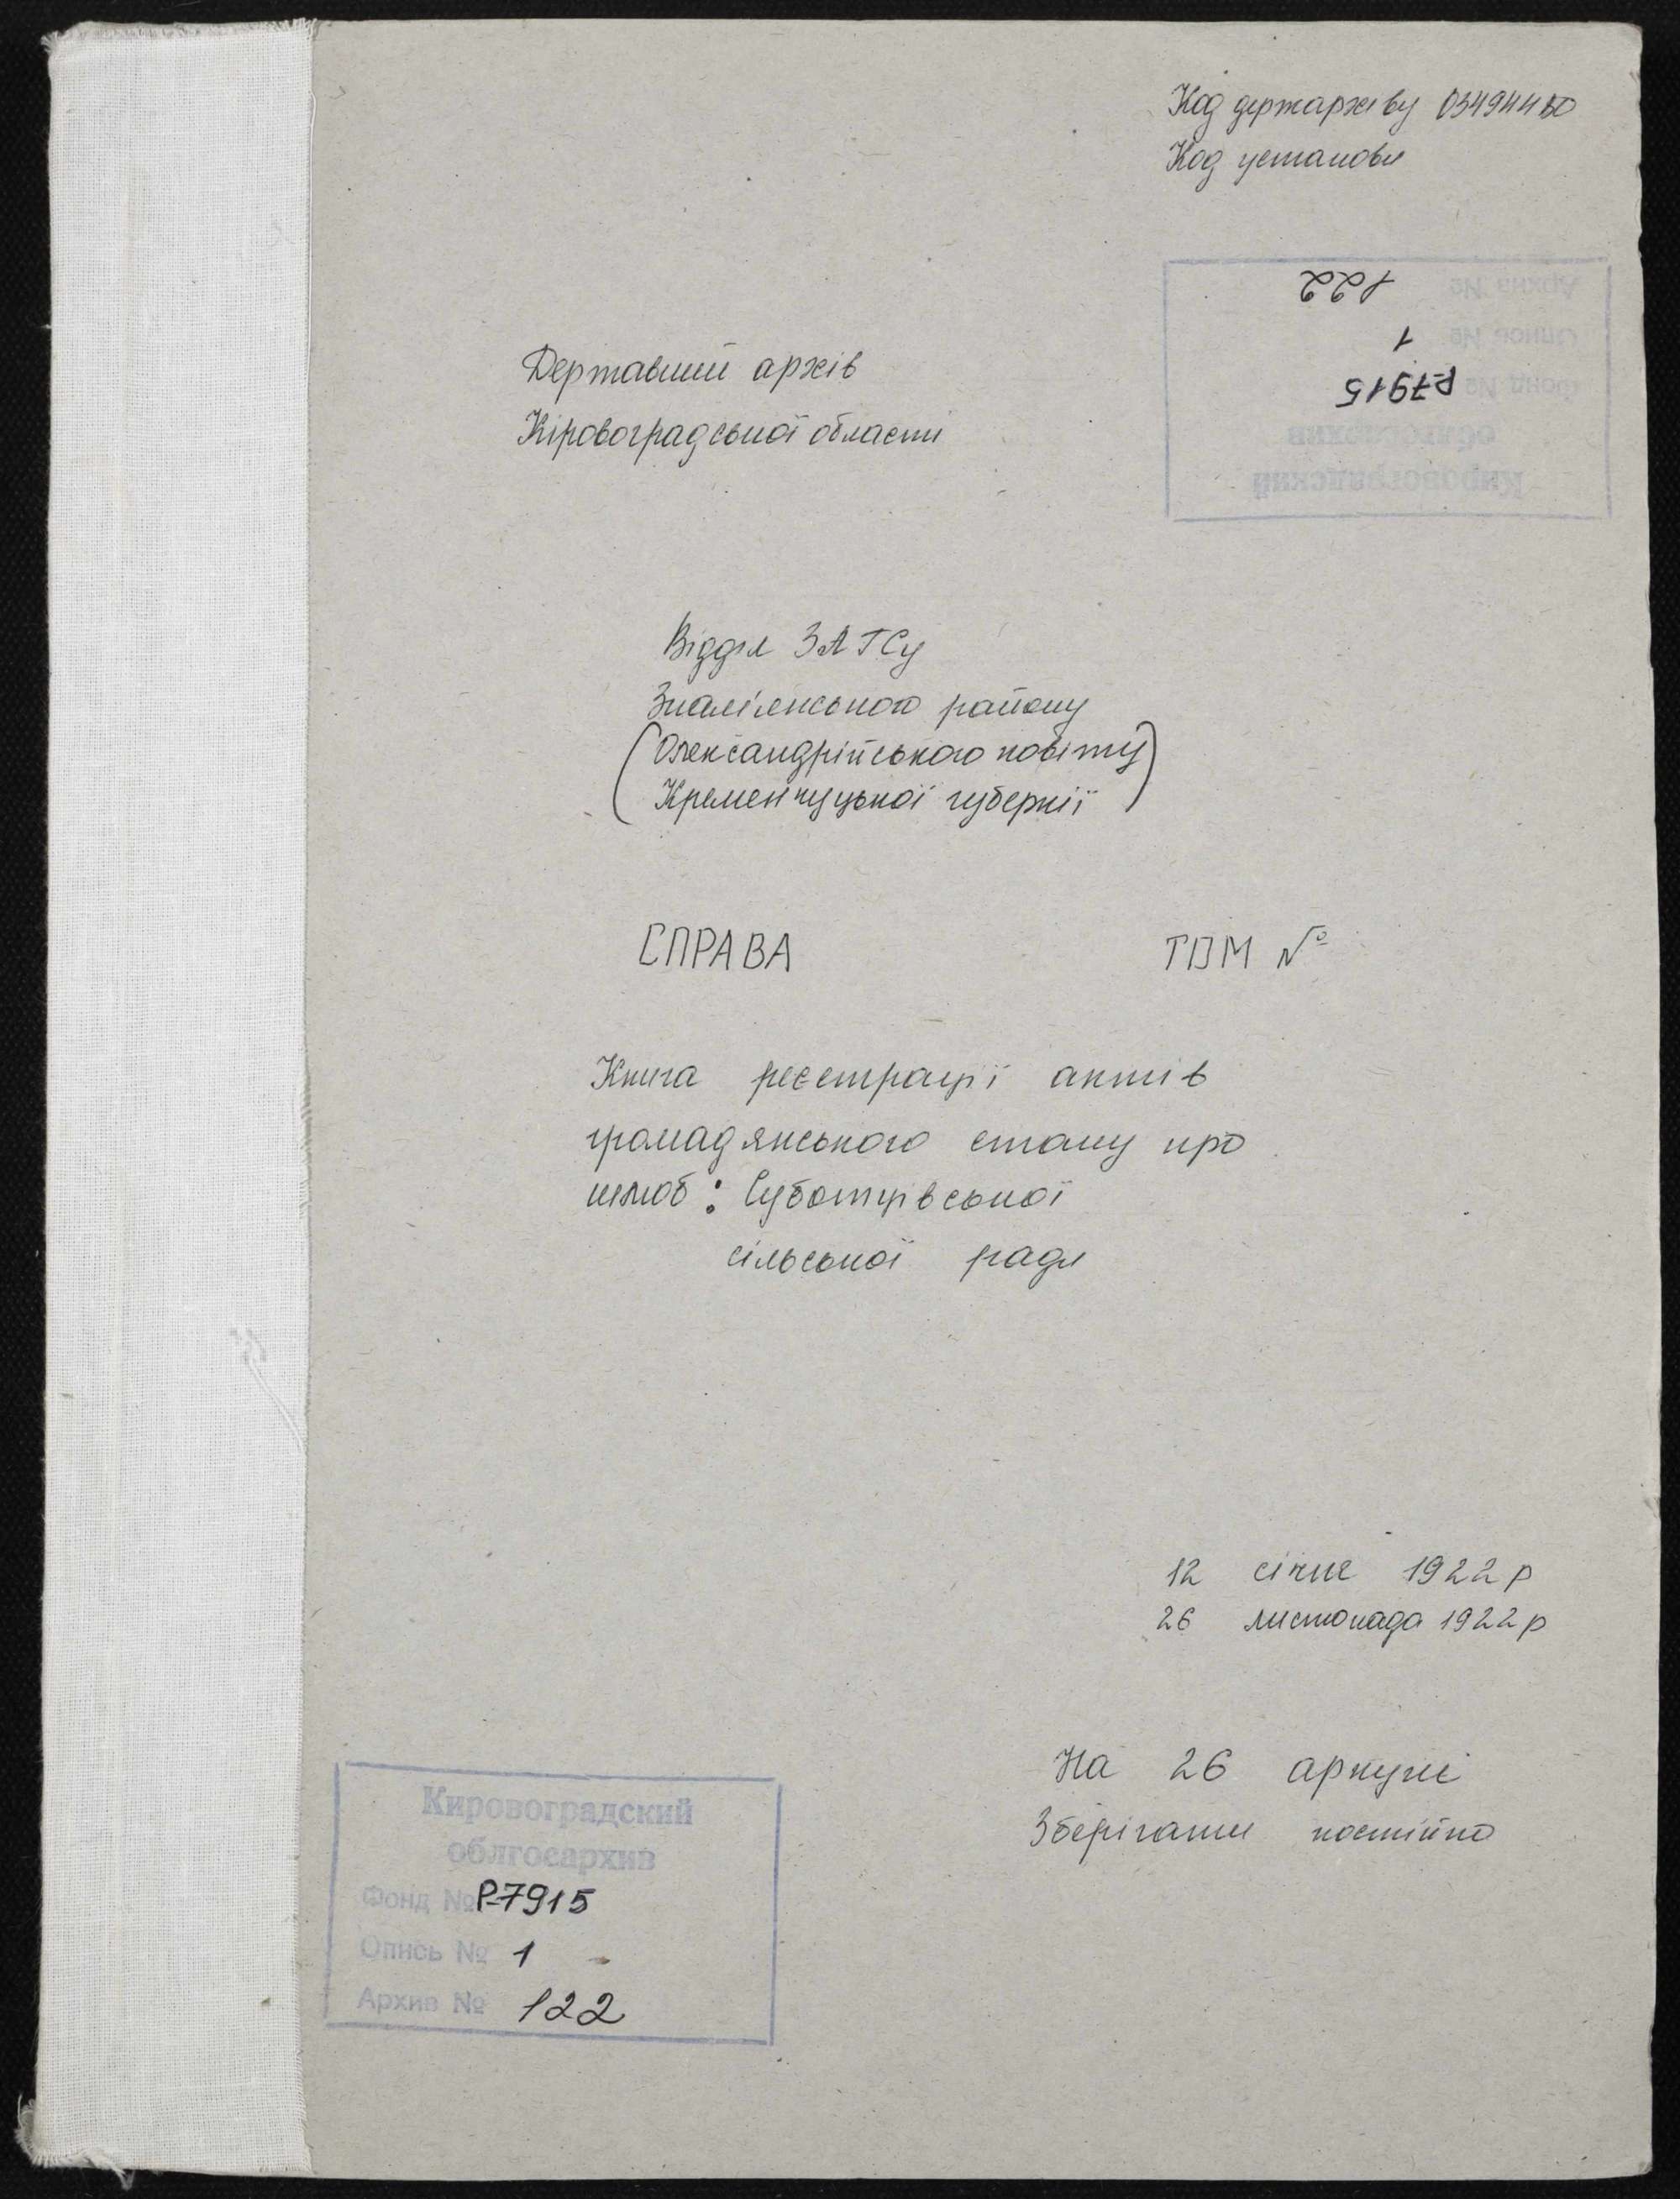 Код держархіву 03494450
Код установи
Архив № 122
Опись № 1
Фонд № Р-7915
облгосархив
Кировоградский
Державний архів
Кіровоградської області
Відділ ЗАГСу
Знам'янського району
(Олександрійського повіту
Кременчуцької губернії)
СПРАВА ТОМ №
Книга реєстрації актів
громадянського стану про
шлюб: Суботцівської
сільської ради
12 січня 1922 р
26 листопада 1922 р
На 26 аркуші
Зберігати постійно
Кировоградский
облгосархив
Фонд № Р-7915
Опись № 1
Архив № 122